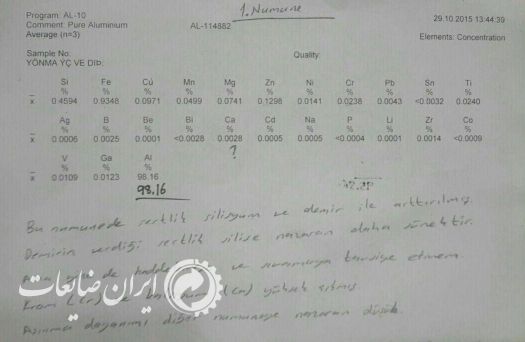 1. Numune
Program: AL-10
Comment: Pure Aluminium
Average (n=3)
AL-114882
29.10.2015 13:44:39
Elements: Concentration
Sample No:
YÖNMA ÝÇ VE DIÞ:
Quality:
Si Fe Cú Mn Mg Zn Ni Cr Pb Sn Ti
% % % % % % % % % % %
x 0.4594 0.9348 0.0971 0.0499 0.0741 0.1298 0.0141 0.0238 0.0043 <0.0032 0.0240
Ag B Be Bi Ca Cd Na P Li Zr Ce
% % % % % % % % % % %
x 0.0006 0.0025 0.0001 <0.0028 0.0028 0.0005 0.0005 <0.0004 0.0001 0.0014 <0.0009
?
V Ga Al
% % %
x 0.0109 0.0123 98.16
98.16
Bu numunede sertlik silisyum ve demir ile arttırılmış.
Demirin verdiği sertlik silise nazaran daha sünektir.
de hadde ve numuneye tavsiye etmem
Krom (Cr) yüksek
Aşınma dayanımı diğer numuneye nazaran düşük.
ایران ضایعات